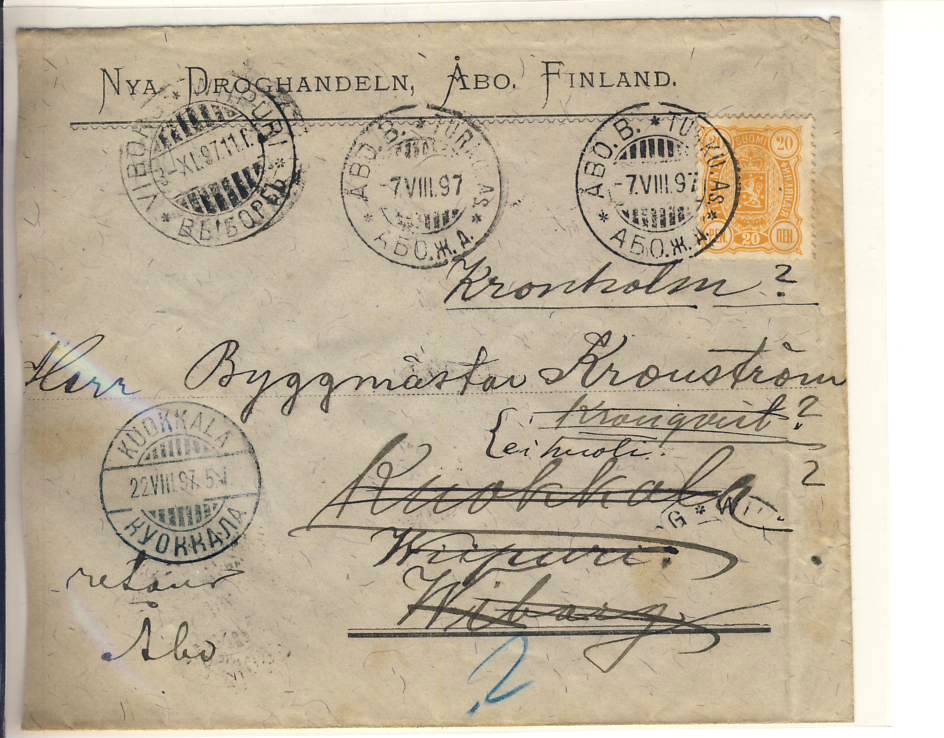 NYA DROGHANDELN, ÅBO. FINLAND.
VIBORG * WIIPURI * ВЫБОРГЪ *
-XI.97.11.
ÅBO.B. * TURKU.AS * АБО.Ж.Д. *
-7.VIII.97
ÅBO.B. * TURKU.AS * АБО.Ж.Д. *
-7.VIII.97
20 SUOMI 20
PEN. 20 PEN.
Kronholm?
Herr Byggmästar Kronström
Kronqvist?
ei huoli. ?
Kuokkala
G * W
Wiipuri
Wiborg
KUOKKALA
22.VIII.97.5
КУОККАЛА
retour
Åbo
2